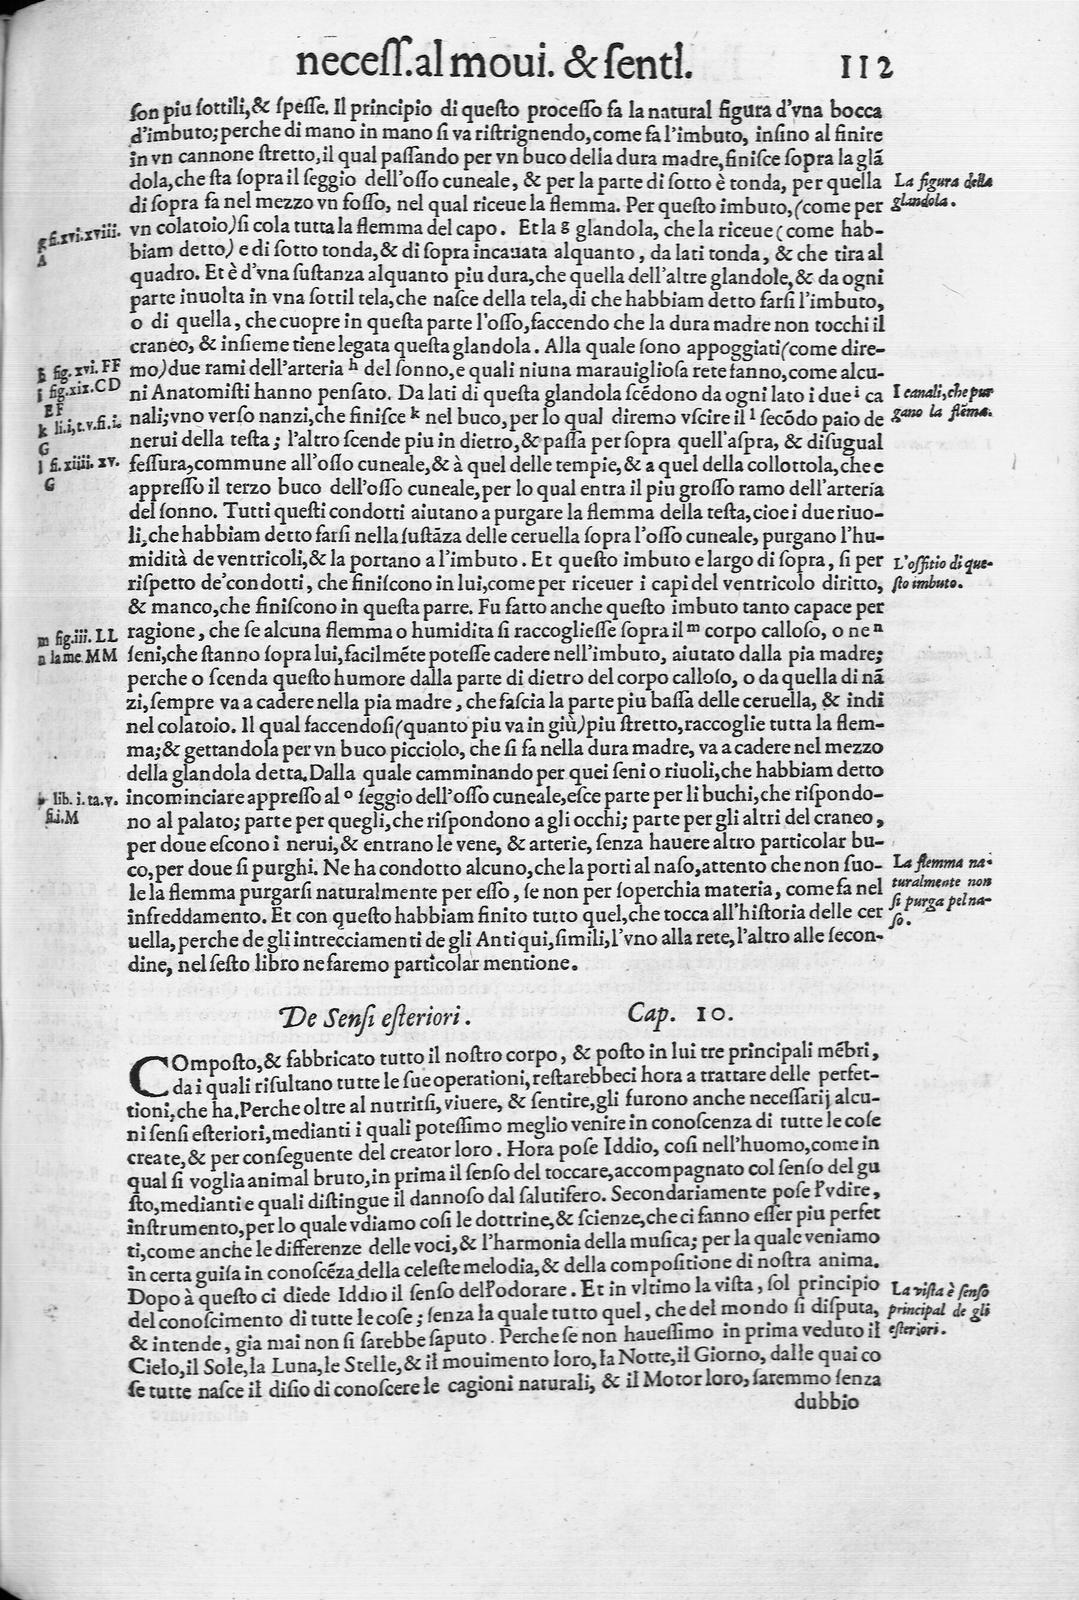 neceſſ.al moui. & ſentI. 112
ſon piu ſottili,& ſpeſſe. Il principio di queſto proceſſo fa la natural figura d'vna bocca
d'imbuto; perche di mano in mano ſi va riſtrignendo, come fa l'imbuto, inſino al finire
in vn cannone ſtretto, il qual paſſando per vn buco della dura madre, finiſce ſopra la glã
dola, che ſta ſopra il ſeggio dell'oſſo cuneale, & per la parte di ſotto è tonda, per quella
di ſopra fa nel mezzo vn foſſo, nel qual riceue la flemma. Per queſto imbuto, (come per
vn colatoio) ſi cola tutta la flemma del capo. Et la g glandola, che la riceue (come hab-
biam detto) e di ſotto tonda,& di ſopra incauata alquanto, da lati tonda, & che tira al
quadro. Et è d'vna ſuſtanza alquanto piu dura, che quella dell'altre glandole,& da ogni
parte inuolta in vna ſottil tela, che naſce della tela, di che habbiam detto farſi l'imbuto,
o di quella, che cuopre in queſta parte l'oſſo, faccendo che la dura madre non tocchi il
craneo, & inſieme tiene legata queſta glandola. Alla quale ſono appoggiati (come dire-
mo) due rami dell'arteria h del ſonno, e quali niuna marauiglioſa rete fanno, come alcu-
ni Anatomiſti hanno penſato. Da lati di queſta glandola ſcẽdono da ogni lato i due i ca
nali; vno verſo nanzi, che finiſce k nel buco, per lo qual diremo vſcire il l ſecõdo paio de
nerui della teſta; l'altro ſcende piu in dietro,& paſſa per ſopra quell'aſpra, & diſugual
feſſura, commune all'oſſo cuneale,& à quel delle tempie,& a quel della collottola, che e
appreſſo il terzo buco dell'oſſo cuneale, per lo qual entra il piu groſſo ramo dell'arteria
del ſonno. Tutti queſti condotti aiutano a purgare la flemma della teſta, cioe i due riuo-
li, che habbiam detto farſi nella ſuſtãza delle ceruella ſopra l'oſſo cuneale, purgano l'hu-
midità de ventricoli,& la portano a l'imbuto. Et queſto imbuto e largo di ſopra, ſi per
riſpetto de'condotti, che finiſcono in lui, come per riceuer i capi del ventricolo diritto,
& manco, che finiſcono in queſta parre. Fu fatto anche queſto imbuto tanto capace per
ragione, che ſe alcuna flemma o humidita ſi raccoglieſſe ſopra il m corpo calloſo, o ne n
ſeni, che ſtanno ſopra lui, facilmẽte poteſſe cadere nell'imbuto, aiutato dalla pia madre;
perche o ſcenda queſto humore dalla parte di dietro del corpo calloſo, o da quella di nã
zi, ſempre va a cadere nella pia madre, che faſcia la parte piu baſſa delle ceruella, & indi
nel colatoio. Il qual faccendoſi (quanto piu va in giù) piu ſtretto, raccoglie tutta la flem-
ma;& gettandola per vn buco picciolo, che ſi fa nella dura madre, va a cadere nel mezzo
della glandola detta. Dalla quale camminando per quei ſeni o riuoli, che habbiam detto
incominciare appreſſo al o ſeggio dell'oſſo cuneale, eſce parte per li buchi, che riſpondo-
no al palato; parte per quegli, che riſpondono a gli occhi; parte per gli altri del craneo,
per doue eſcono i nerui,& entrano le vene, & arterie, ſenza hauere altro particolar bu-
co, per doue ſi purghi. Ne ha condotto alcuno, che la porti al naſo, attento che non ſuo-
le la flemma purgarſi naturalmente per eſſo, ſe non per ſoperchia materia, come fa nel
infreddamento. Et con queſto habbiam finito tutto quel, che tocca all'hiſtoria delle cer
uella, perche de gli intrecciamenti de gli Antiqui, ſimili, l'vno alla rete, l'altro alle ſecon-
dine, nel ſeſto libro ne faremo particolar mentione.
De Senſi eſteriori. Cap. 10.
COmpoſto,& fabbricato tutto il noſtro corpo, & poſto in lui tre principali mẽbri,
da i quali riſultano tutte le ſue operationi, reſtarebbeci hora a trattare delle perfet-
tioni, che ha. Perche oltre al nutrirſi, viuere, & ſentire, gli furono anche neceſſarij alcu-
ni ſenſi eſteriori, medianti i quali poteſſimo meglio venire in conoſcenza di tutte le coſe
create,& per conſeguente del creator loro. Hora poſe Iddio, coſi nell'huomo, come in
qual ſi voglia animal bruto, in prima il ſenſo del toccare, accompagnato col ſenſo del gu
ſto, medianti e quali diſtingue il dannoſo dal ſalutifero. Secondariamente poſe l'vdire,
inſtrumento, per lo quale vdiamo coſi le dottrine,& ſcienze, che ci fanno eſſer piu perfet
ti, come anche le differenze delle voci,& l'harmonia della muſica; per la quale veniamo
in certa guiſa in conoſcẽza della celeſte melodia,& della compoſitione di noſtra anima.
Dopo à queſto ci diede Iddio il ſenſo dell'odorare. Et in vltimo la viſta, ſol principio
del conoſcimento di tutte le coſe; ſenza la quale tutto quel, che del mondo ſi diſputa,
& intende, gia mai non ſi ſarebbe ſaputo. Perche ſe non haueſſimo in prima veduto il
Cielo, il Sole, la Luna, le Stelle,& il mouimento loro, la Notte, il Giorno, dalle quai co
ſe tutte naſce il diſio di conoſcere le cagioni naturali, & il Motor loro, ſaremmo ſenza
dubbio
g fi.xvi.xviii.
A
h fig. xvi. FF
i fig.xix.CD
EF
k li.i,t.v.fi.i.
G
l fi.xiiii. xv.
G
m fig.iii. LL
n la me. MM
lib. i. ta. v.
fi.i.M
La figura della
glandola.
I canali, che pur
gano la flẽma.
L'offitio di que-
ſto imbuto.
La flemma na-
turalmente non
ſi purga pel na-
ſo.
La viſta è ſenſo
principal de gli
eſteriori.